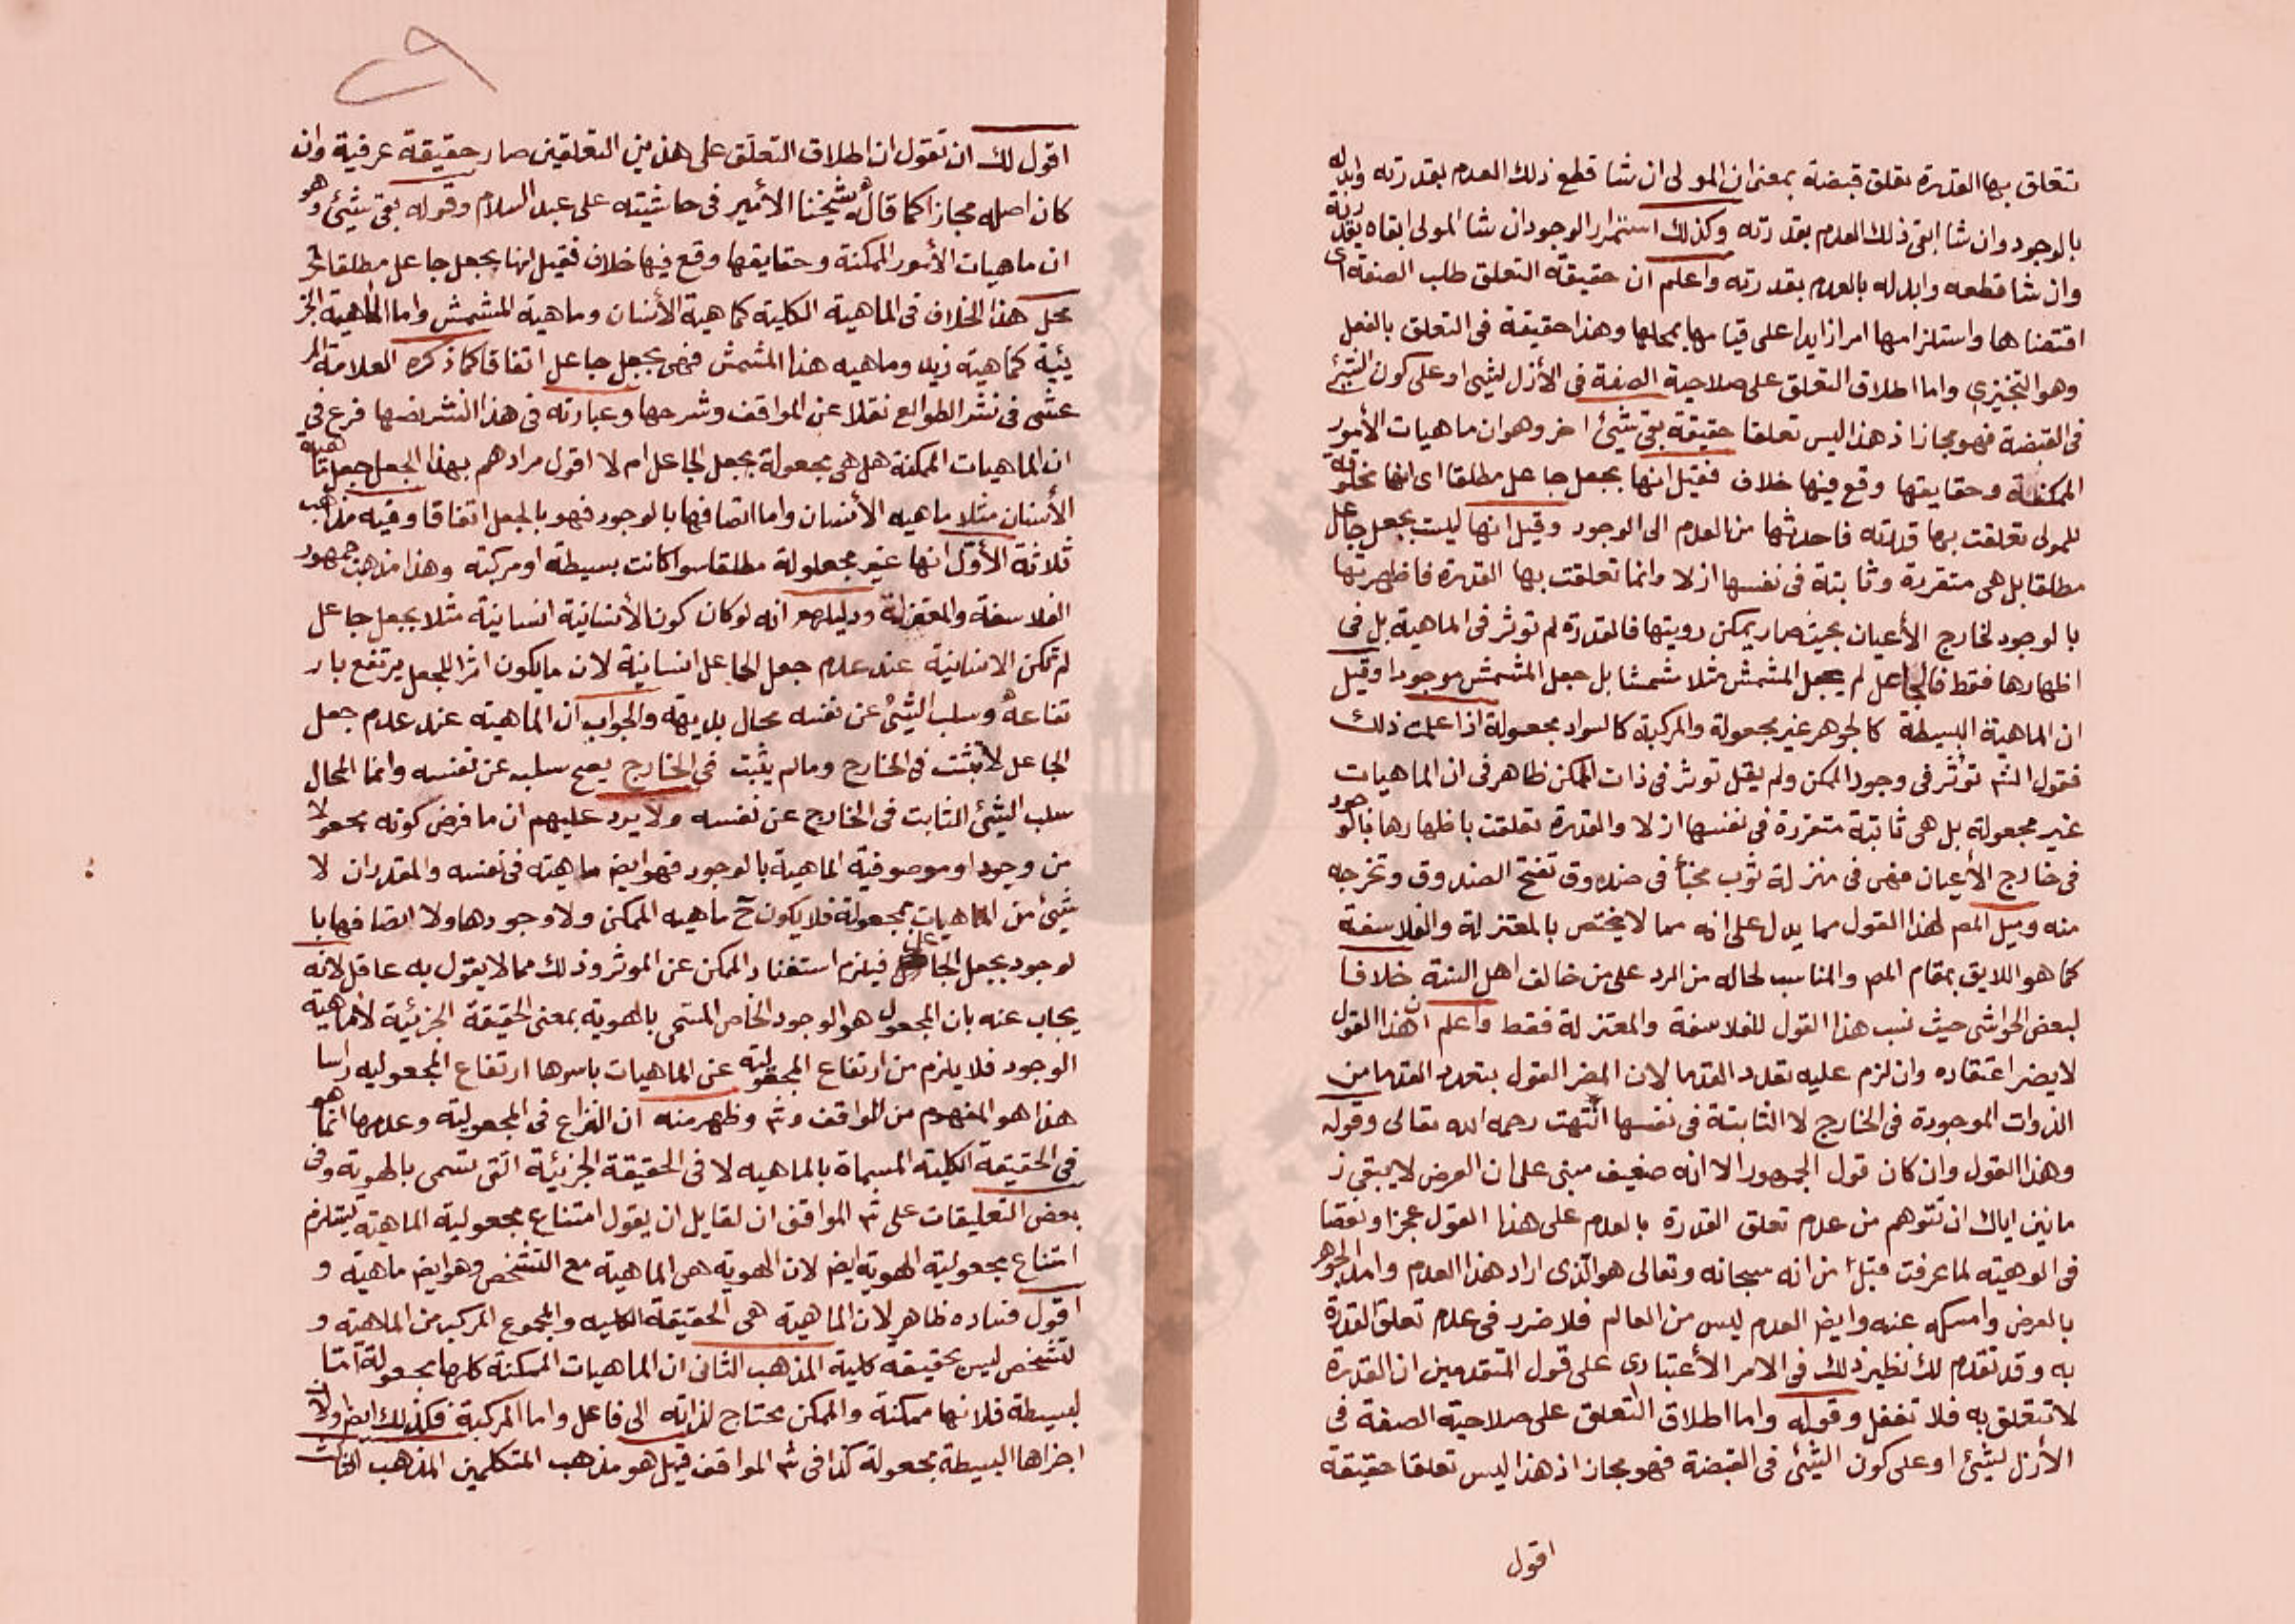 تتعلق بها القدرة تعلق قبضة بمعنى ان المولى ان شا قطع ذلك العدم بقدرته وابدله
بالوجود وان شا ابقى ذلك العدم بقدرته وكذلك استمرار الوجود ان شا المولى ابقاه بقدرته
وان شا قطعه وابدله بالعدم بقدرته واعلم ان حقيقة التعلق طلب الصفة اى
اقتضاها واستلزامها امرا زايدا على قيامها بمحلها وهذا حقيقة فى التعلق بالفعل
وهو التنجيزى واما اطلاق التعلق على صلاحية الصفة فى الأزل لشى او على كون الشئ
فى القبضة فهو مجاز اذ هذا ليس تعلقا حقيقة بقى شئ اخر وهو ان ماهيات الأمور
الممكنة وحقايقها وقع فيها خلاف فقيل انها بجعل جاعل مطلقا اى انها مخلوقة
للمولى تعلقت بها قدرته فاحدثها من العدم الى الوجود وقيل انها ليست بجعل جاعل
مطلقا بل هى متقررة وثابتة فى نفسها ازلا وانما تعلقت بها القدرة فاظهرتها
بالوجود لخارج الأعيان بحيث صار يمكن رويتها فالقدرة لم توثر فى الماهية بل فى
اظهارها فقط فالجاعل لم يجعل المشمش مثلا مشمشا بل جعل المشمش موجودا وقيل
ان الماهية البسيطة كالجوهر غير مجعولة والمركبة كالسواد مجعولة اذا علمت ذلك
فقول الشم تؤثر فى وجود الممكن ولم يقل توثر فى ذات الممكن ظاهر فى ان الماهيات
غير مجعولة بل هى ثابتة متقررة فى نفسها ازلا والقدرة تعلقت باظهارها بالوجود
فى خارج الأعيان فهى فى منزلة ثوب مخبأ فى صندوق تفتح الصندوق وتخرجه
منه وميل المم لهذا القول مما يدل على انه مما لا يختص بالمعتزلة والفلاسفة
كما هو اللايق بمقام المم والمناسب لحاله من الرد على من خالف اهل السنة خلافا
لبعض الحواشى حيث نسب هذا القول للفلاسفة والمعتزلة فقط واعلم ان هذا القول
لا يضر اعتقاده وان لزم عليه تعدد القدما لان المضر القول بتعدد القدما من
الذوات الموجودة فى الخارج لا الثابتة فى نفسها انتهت رحمه الله تعالى وقوله
وهذا القول وان كان قول الجمهور الا انه ضعيف مبنى على ان العرض لا يبقى ز
مانين اياك ان تتوهم من عدم تعلق القدرة بالعدم على هذا القول عجزا ونقصا
فى الوهيته لما عرفت قبل من انه سبحانه وتعالى هو الذى اراد هذا العدم وامد الجوهر
بالعرض وامسكه عنه وايض العدم ليس من العالم فلا ضرر فى عدم تعلق القدرة
به وقد تقدم لك نظير ذلك فى الامر الأعتبارى على قول المتقدمين ان القدرة
لا تتعلق به فلا تغفل وقوله واما اطلاق التعلق على صلاحية الصفة فى
الأزل لشئ او على كون الشئ فى القبضة فهو مجاز اذ هذا ليس تعلقا حقيقة
اقول
اقول لك ان تقول ان اطلاق التعلق على هذين التعلقين صار حقيقة عرفية وان
كان اصله مجازا كما قاله شيخنا الأمير فى حاشيته على عبد السلام وقوله بقى شئ وهو
ان ماهيات الأمور الممكنة وحقايقها وقع فيها خلاف فقيل انها بجعل جاعل مطلقا الخ
محل هذا الخلاف فى الماهية الكلية كماهية الأنسان وماهية المشمش واما الماهية الجز
ئية كماهية زيد وماهيه هذا المشمش فهى بجعل جاعل اتفاقا كما ذكره العلامة المر
عشى فى نشر الطوالع نقلا عن المواقف وشرحها وعبارته فى هذا النشر نصها فرع فى
ان الماهيات الممكنة هل هى مجعولة بجعل الجاعل ام لا اقول مرادهم بهذا الجعل جعل ماهية
الأنسان مثلا ماهيه الأنسان واما اتصافها بالوجود فهو بالجعل اتفاقا وفيه مذاهب
ثلاثة الأول انها غير مجعولة مطلقا سوا كانت بسيطة او مركبة وهذا مذهب جمهور
الفلاسفة والمعتزلة ودليلهم انه لو كان كون الأنسانية انسانية مثلا بجعل جاعل
لم تكن الانسانية عند عدم جعل الجاعل انسانية لان ما يكون اثرا للجعل يرتفع بار
تفاعه وسلب الشئ عن نفسه محال بديهة والجواب ان الماهية عند عدم جعل
الجاعل لا تثبت فى الخارج ومالم يثبت فى الخارج يصح سلبه عن نفسه وانما المحال
سلب الشئ الثابت فى الخارج عن نفسه ولا يرد عليهم ان ما فرض كونه مجعولا
من وجود او موصوفية الماهية بالوجود فهو ايض ماهية فى نفسه والمقدر ان لا
شئ من الماهيات بمجعولة فلا يكون ح ماهيه الممكن ولا وجودها ولا اتصافها با
لوجود بجعل الجاعل فيلزم استغناء الممكن عن الموثر وذلك مما لا يقول به عاقل لانه
يجاب عنه بان المجعول هو الوجود الخاص المسمى بالهوية بمعنى الحقيقة الجزئية لا ماهية
الوجود فلا يلزم من ارتفاع المجعولية عن الماهيات باسرها ارتفاع المجعولية راسا
هذا هو المفهوم من المواقف وشر وظهر منه ان النزاع فى المجعولية وعدمها انما هو
فى الحقيقة الكلية المسماة بالماهيه لا فى الحقيقة الجزئية التى تسمى بالهوية وفى
بعض التعليقات على شر المواقف ان لقايل ان يقول امتناع مجعولية الماهية يستلزم
امتناع مجعولية الهوية ايض لان الهوية هى الماهية مع التشخص وهو ايض ماهية و
اقول فساده ظاهر لان الماهية هى الحقيقة الكليه والمجموع المركب من الماهية و
التشخص ليس بحقيقة كلية المذهب الثانى ان الماهيات الممكنة كلها مجعولة اما
البسيطة فلانها ممكنة والممكن محتاج لذاته الى فاعل واما المركبة فكذلك ايض ولان
اجزاها البسيطة مجعولة كذا فى شر المواقف قيل هو مذهب المتكلمين المذهب الثالث